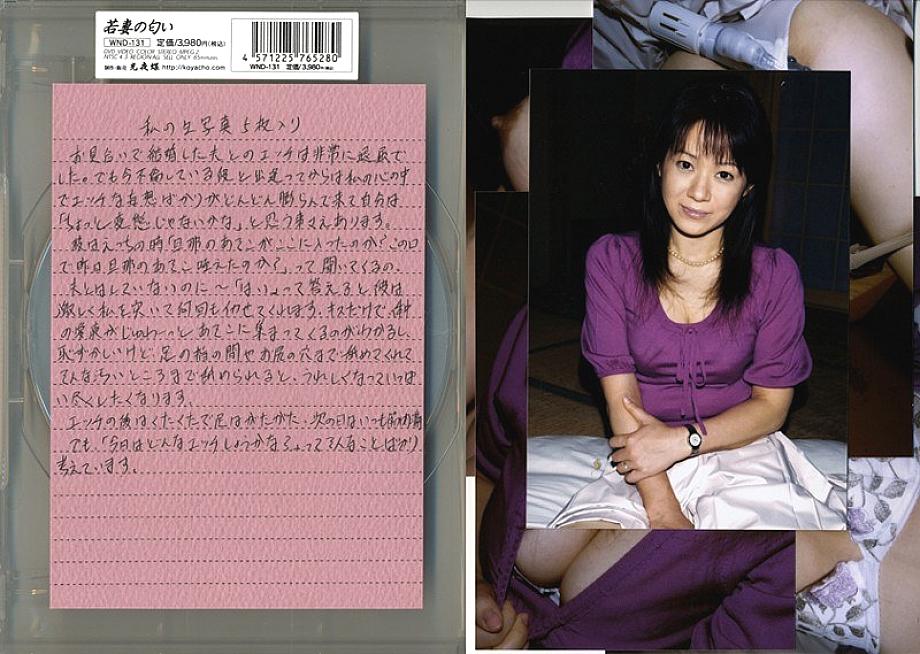 若妻の匂い
WND-131 定価/3,980円(税込)
DVD VIDEO COLOR STEREO MPEG 2
http://koyacho.com
4 571225 765280
WND-131 定価/3,980円(税込)
私の生写真5枚入り
お見合いで結婚した夫とのエッチは非常に退屈で
した。でも今不倫している彼と出逢ってからは私の心の中
でエッチな妄想ばかりがどんどん膨らんで来て自分は
「ちょっと変態じゃないかな」と思う事さえあります。
彼はえっちの時「旦那のあそこがここに入ったのか?この口
で昨日旦那のあそこ咥えたのか?」って聞いてくるの、
夫とはしていないのに〜「はい」って答えると彼は
激しく私を突いて何回もイかせてくれます。キスだけで、
の愛液がじゅわ〜っとあそこに集まってくるのがわかるし、
恥ずかしいけど、足の指の間やお尻の穴まで舐めてくれて
そんなところまで舐められると、うれしくなっていっぱ
い尽くしたくなります。
エッチの後はくたくたで足はがたがた、次の日はいつも筋肉痛
でも、「今日はどんなエッチしようかな?」ってそんなことばかり
考えています。